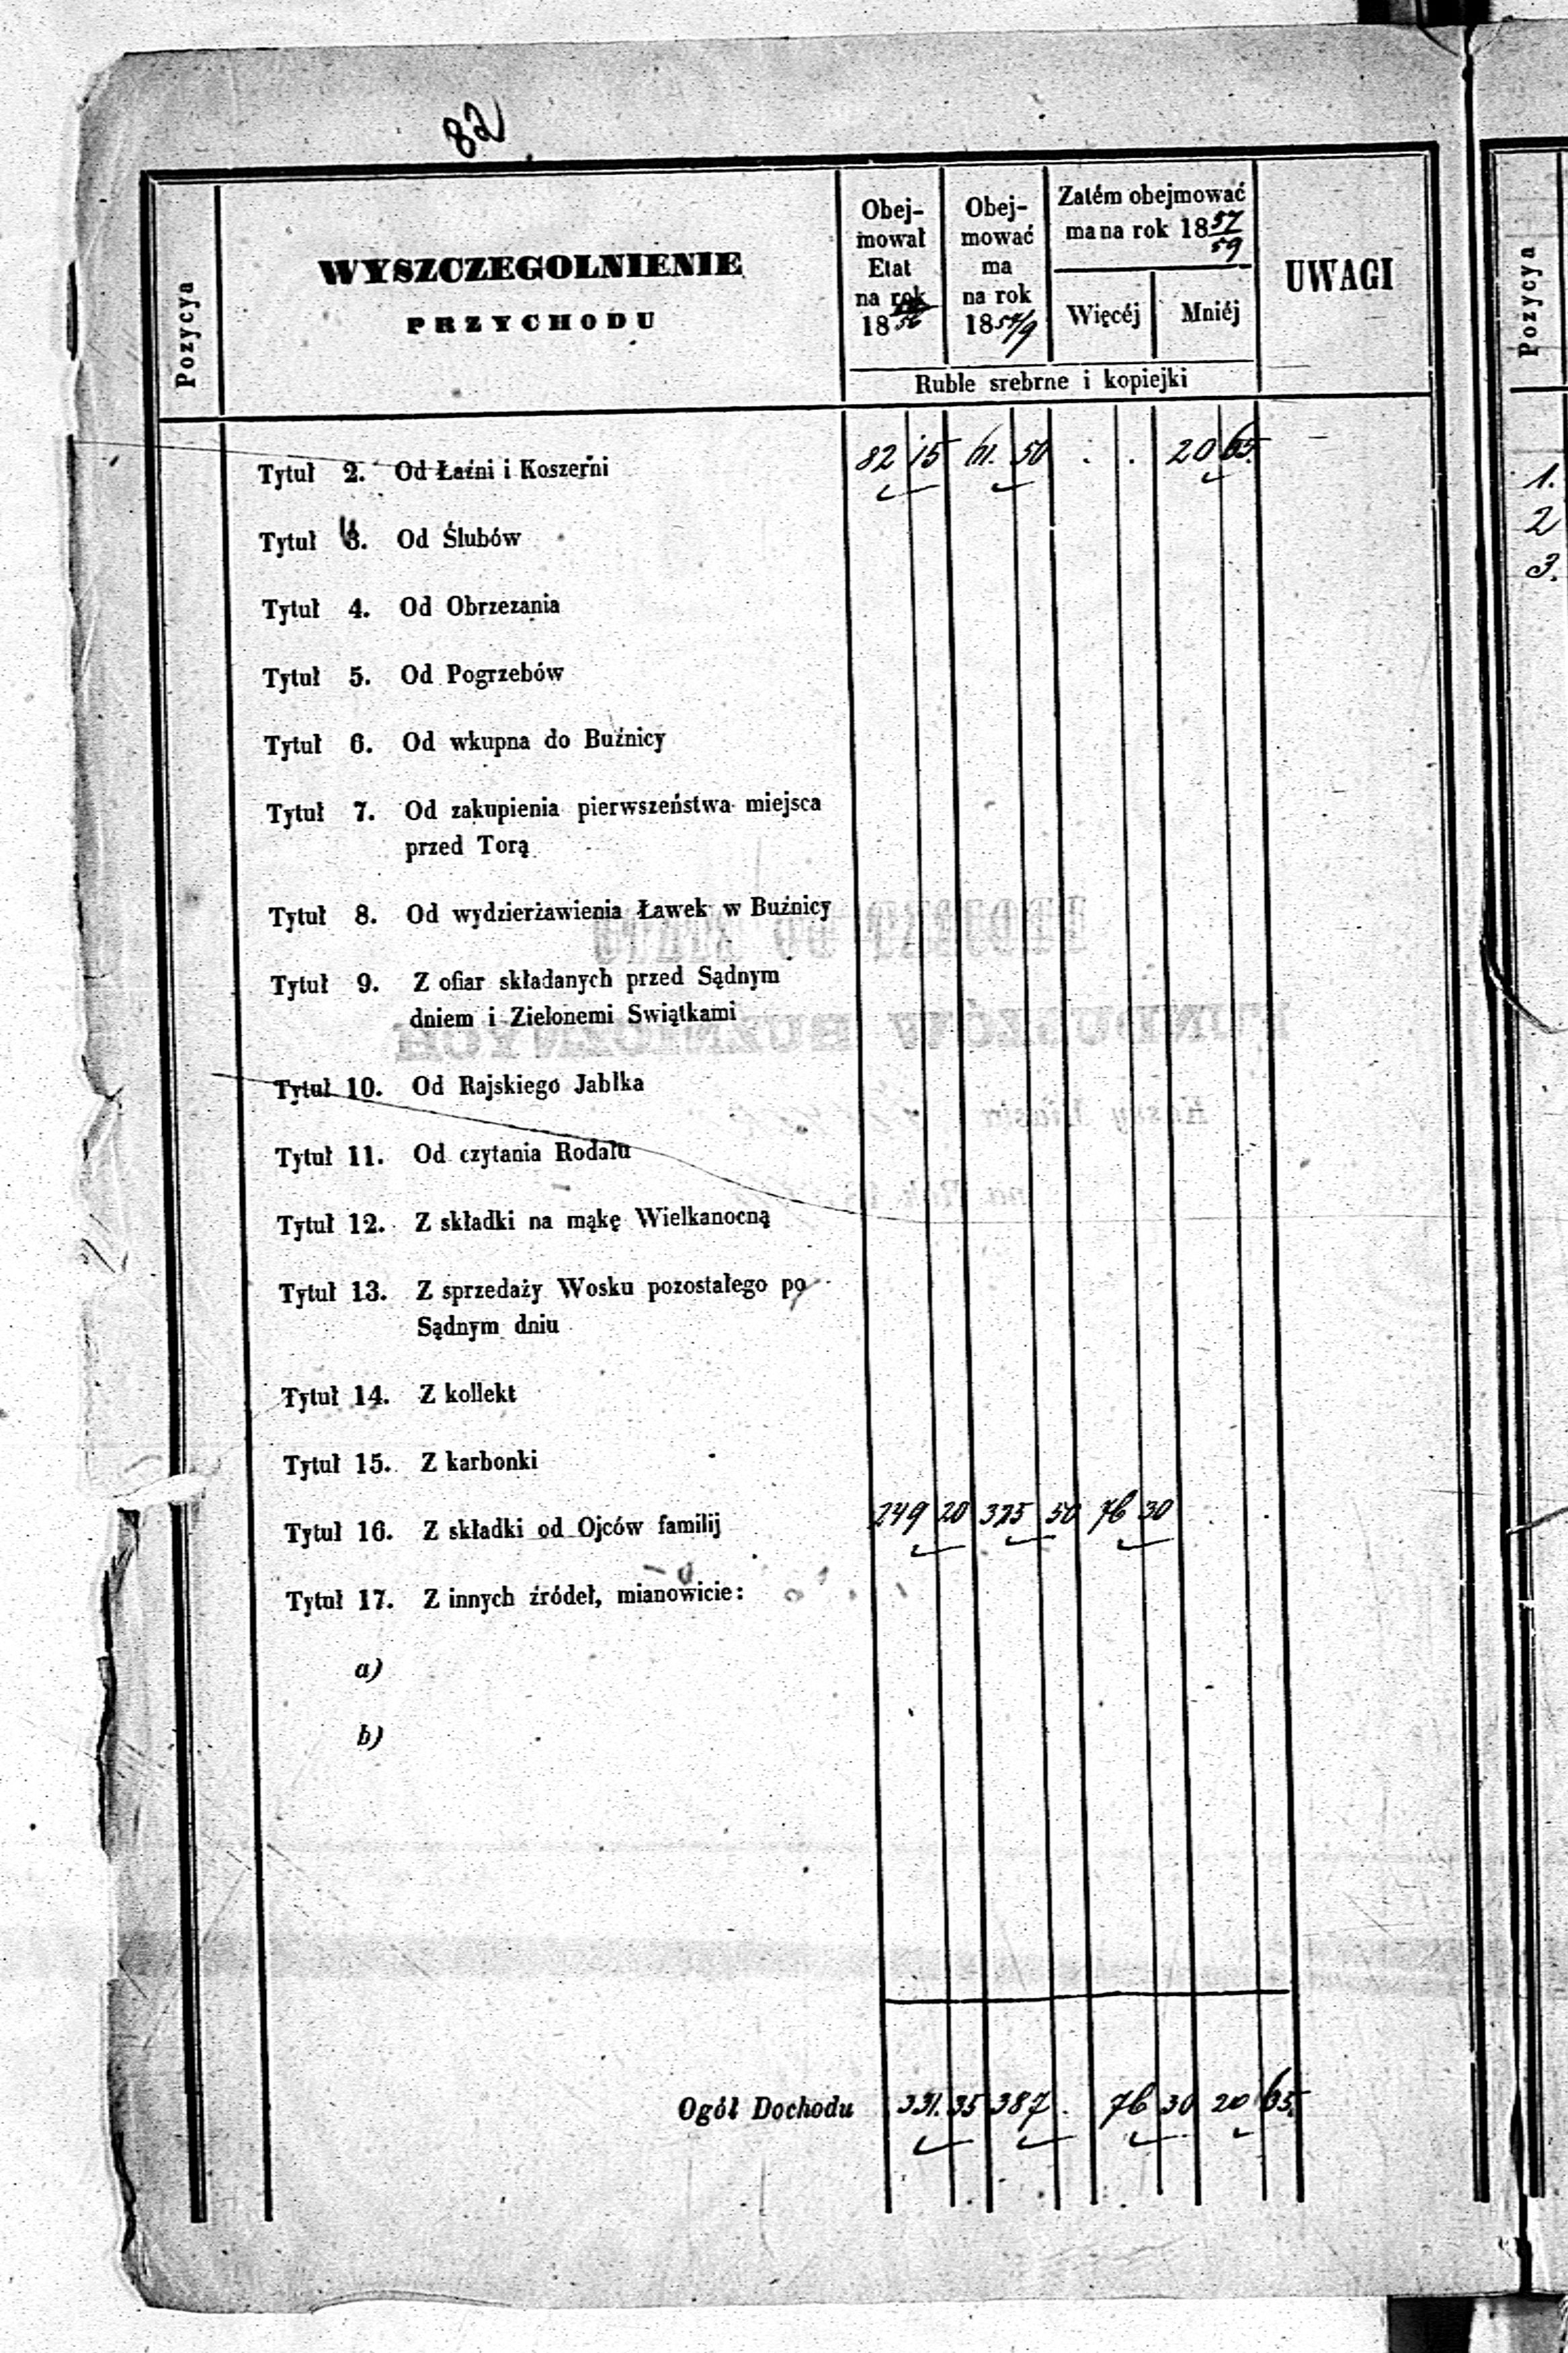 82
Pozycya
WYSZCZEGOLNIENIE
PRZYCHODU
Obej-
mował
Etat
na rok
1856
Obej-
mować
ma
na rok
1857/9
Zatém obejmować
ma na rok 1857/59
Więcéj
Mniéj
Ruble srebrne i kopiejki
UWAGI
Tytuł 2. Od Łaźni i Koszerni 82 15 61. 50 . . 20 65.
Tytuł 3. Od Ślubów
Tytuł 4. Od Obrzezania
Tytuł 5. Od Pogrzebów
Tytuł 6. Od wkupna do Buźnicy
Tytuł 7. Od zakupienia pierwszeństwa miejsca
przed Torą
Tytuł 8. Od wydzierżawienia Ławek w Buźnicy
Tytuł 9. Z ofiar składanych przed Sądnym
dniem i Zielonemi Swiątkami
Tytuł 10. Od Rajskiego Jabłka
Tytuł 11. Od czytania Rodału
Tytuł 12. Z składki na mąkę Wielkanocną
Tytuł 13. Z sprzedaży Wosku pozostałego po
Sądnym dniu
Tytuł 14. Z kollekt
Tytuł 15. Z karbonki
Tytuł 16. Z składki od Ojców familij 249 20 325 50 76 30
Tytuł 17. Z innych źródeł, mianowicie:
a)
b)
Ogół Dochodu 331. 35 387 . 76 30 20 65.
Pozycya
1.
2
3.